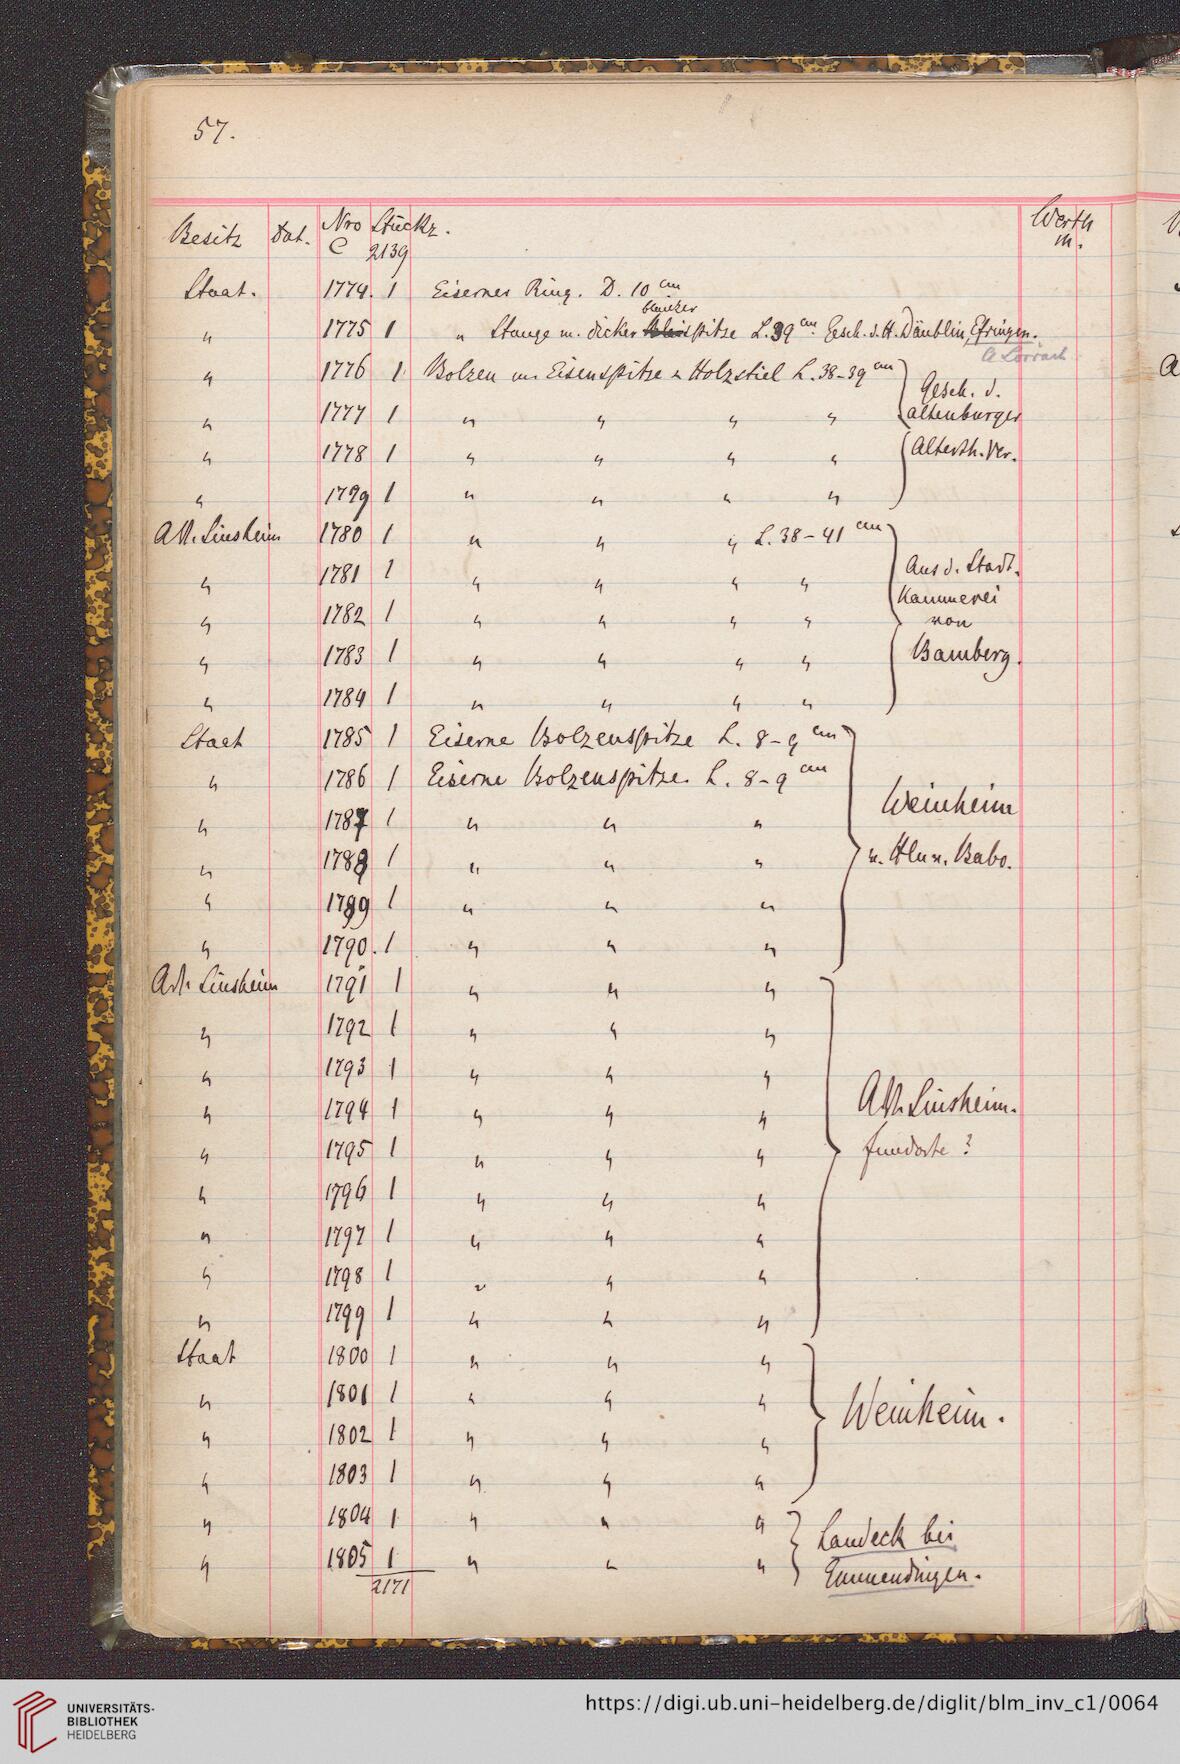 57.
Besitz Dat. Nro Stückz. Werth
C 2139 m.
Staat. 1774. 1 Eiserner Ring. D. 10 cm
bleierner
" 1775 1 " Stange m. dicker spitze L. 39 cm. Gesch. d. H. Däublin, Efringen.
A Lörrach
" 1776 1 Bolzen m. Eisenspitze u Holzstiel L. 38-39 cm
Gesch. d.
" 1777 1 " " " " altenburger
" 1778 1 " " " " Alterth. Ver.
" 1779 1 " " " "
Alt. Sinsheim 1780 1 " " " L. 38-41 cm
" 1781 1 " " " " Aus d. Stadt-
Kämmerei
" 1782 1 " " " " von
" 1783 1 " " " " Bamberg.
" 1784 1 " " " "
Staat 1785 1 Eiserne Bolzenspitze L. 8-9 cm
" 1786 1 Eiserne Bolzenspitze. L. 8-9 cm
Weinheim
" 1787 1 " " "
" 1788 1 " " " v. Hln v. Babo.
" 1789 1 " " "
" 1790. 1 " " "
Alt. Sinsheim 1791 1 " " "
" 1792 1 " " "
" 1793 1 " " "
" 1794 1 " " " Alt. Sinsheim.
" 1795 1 " " " fundorte?
" 1796 1 " " "
" 1797 1 " " "
" 1798 1 " " "
" 1799 1 " " "
Staat 1800 1 " " "
" 1801 1 " " " Weinheim.
" 1802 1 " " "
" 1803 1 " " "
" 1804 1 " " " Landeck bei
" 1805 1 " " " Emmendingen.
2171
UNIVERSITÄTS-
BIBLIOTHEK
HEIDELBERG
https://digi.ub.uni-heidelberg.de/diglit/blm_inv_c1/0064